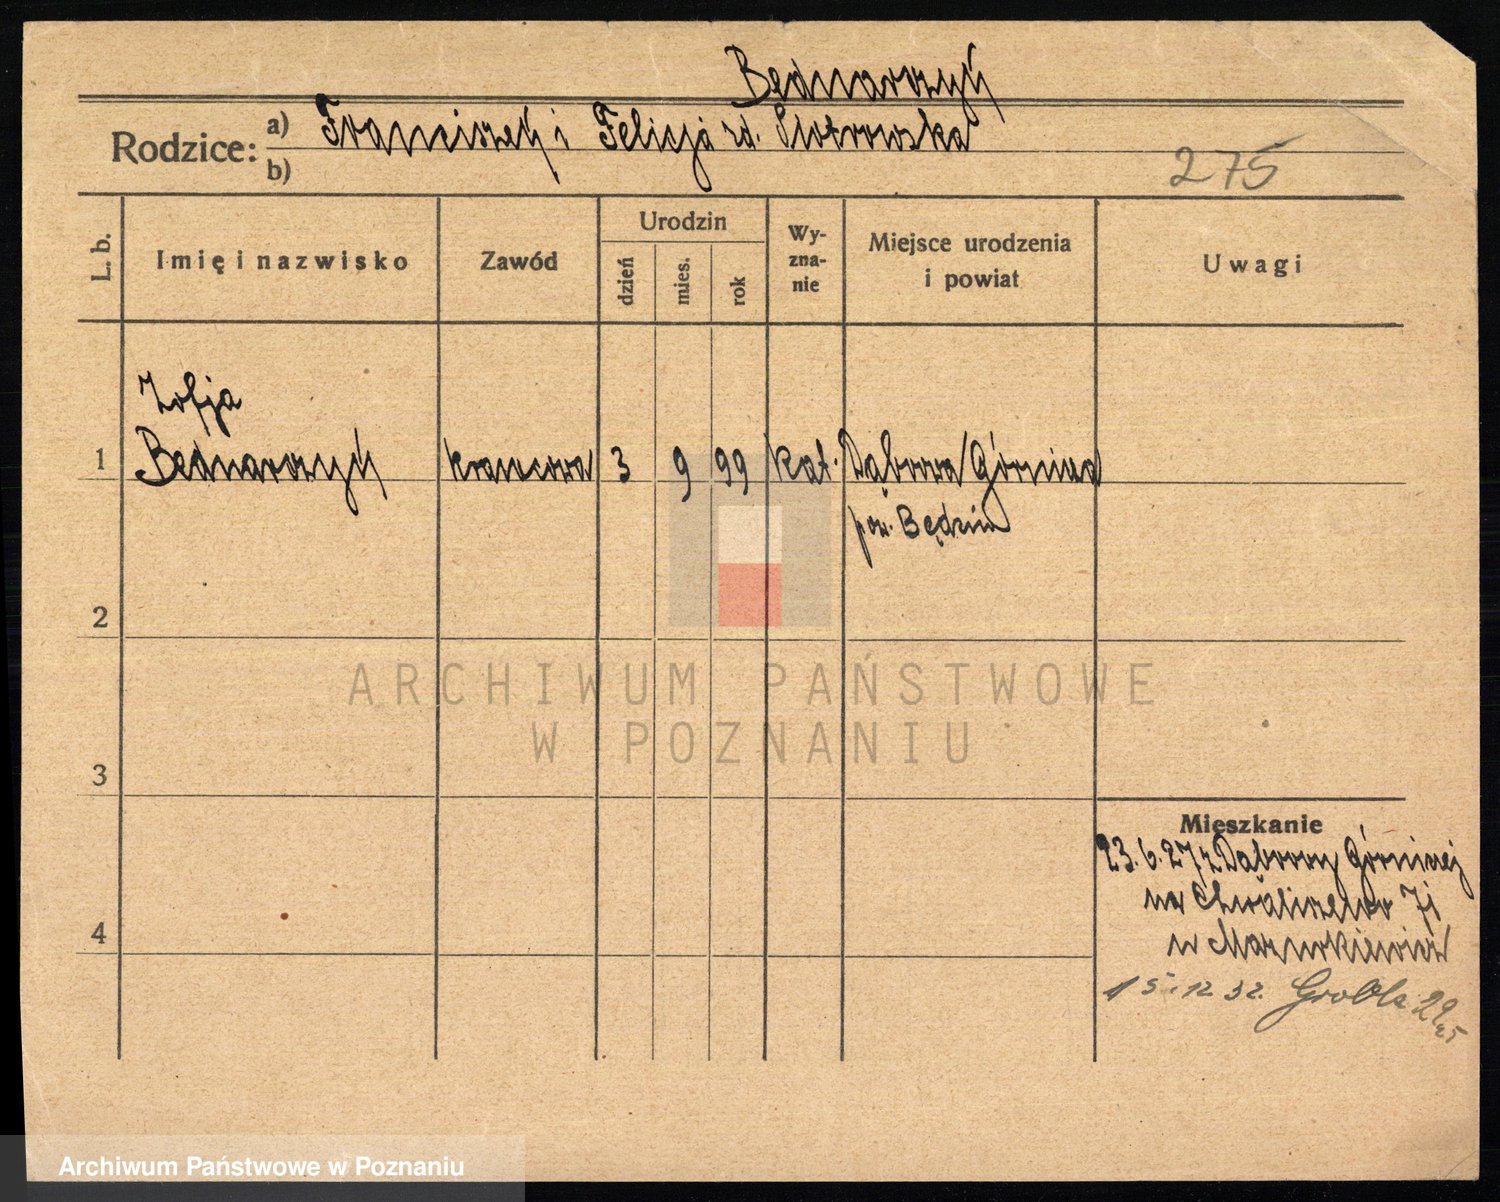 Bednarczyk
Rodzice: a) Franciszek i Felicja zd. Piotrowska
b)
275
L. b.
Imię i nazwisko
Zawód
Urodzin
dzień
mies.
rok
Wy-
zna-
nie
Miejsce urodzenia
i powiat
Uwagi
Zofja
1 Bednarczyk krawcowa 3 9 99 kat. Dąbrowa Górnicza
pow. Będzin
2
3
4
Mieszkanie
23.6.27 z Dąbrowy Górniczej
na Chwaliszewo 71
u Mazurkiewicz
15.12 32. Grobla 22
ARCHIWUM PAŃSTWOWE
W POZNANIU
Archiwum Państwowe w Poznaniu